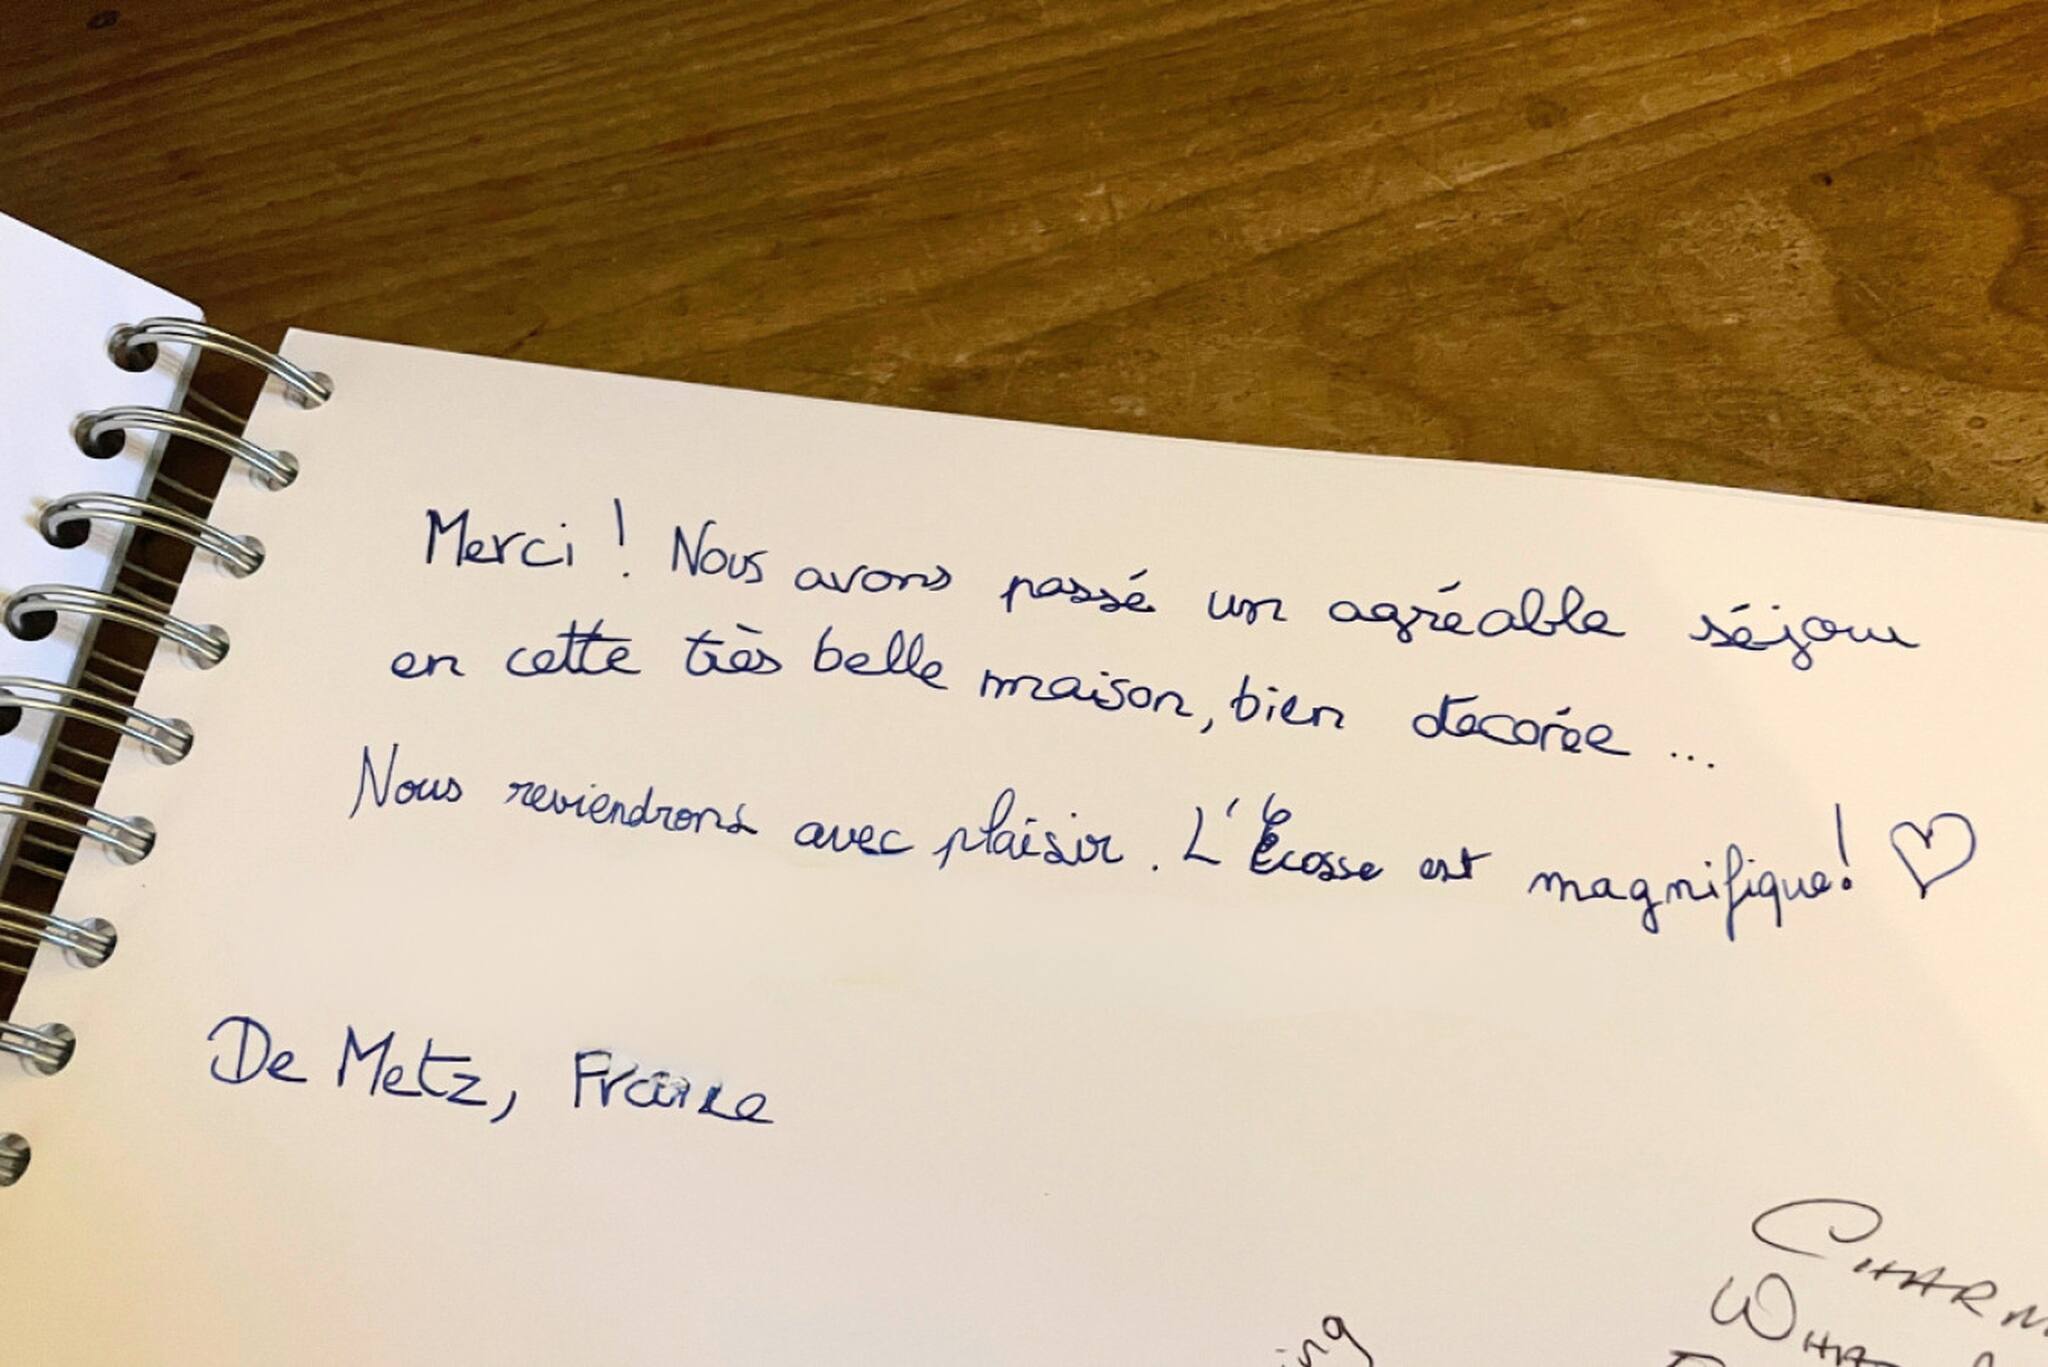 Merci ! Nous avons passé un agréable séjour
en cette très belle maison, bien decorée ...
Nous reviendrons avec plaisir. L'Écosse est magnifique! ♡
De Metz, France
CHARM
ing